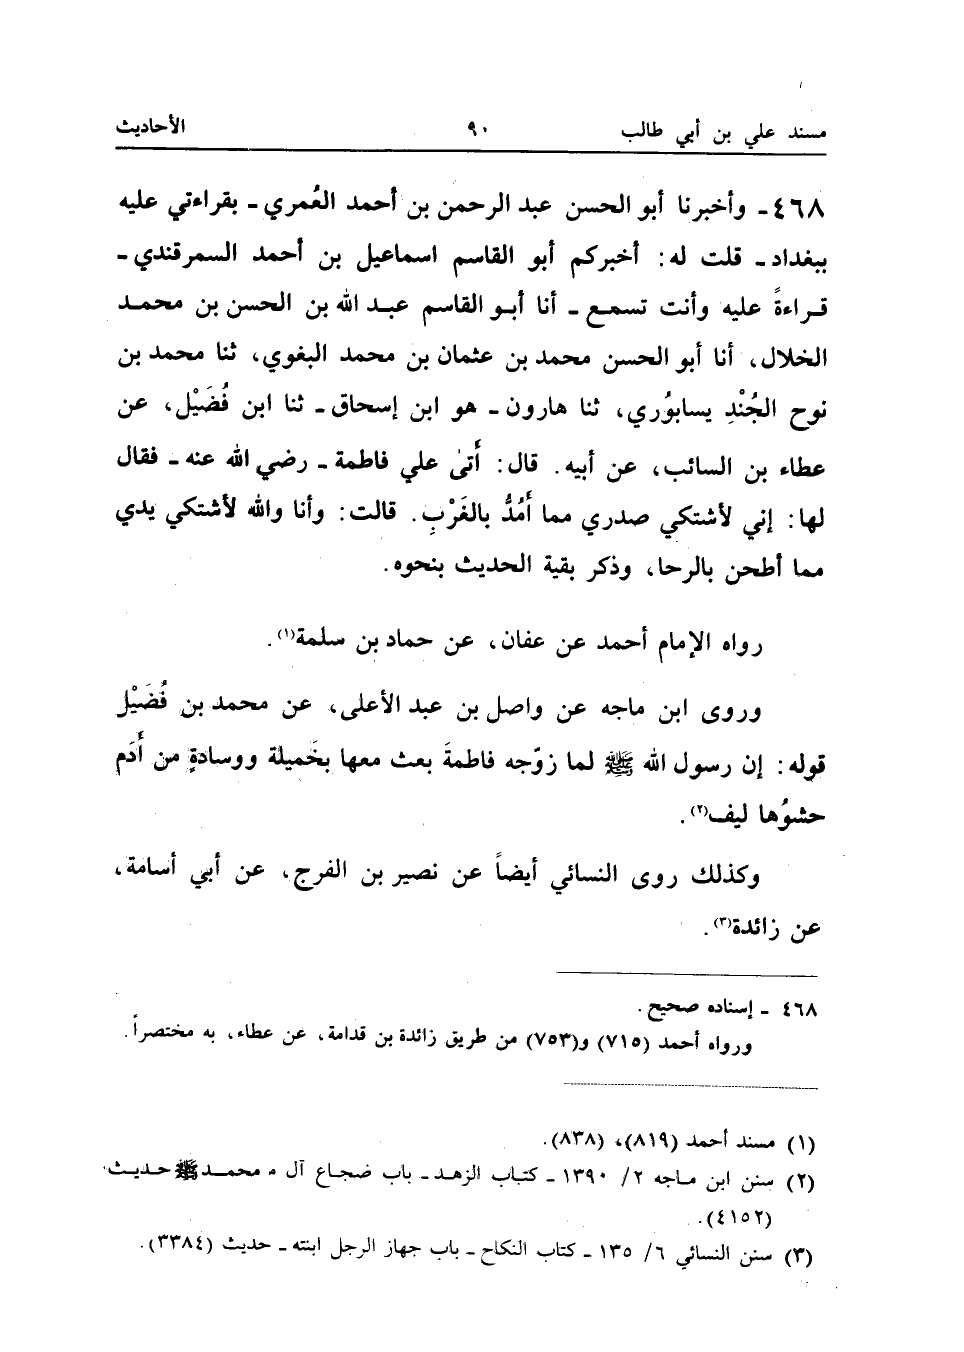 مسند علي بن أبي طالب ٩٠ الأحاديث
٤٦٨ ـ وأخبرنا أبو الحسن عبد الرحمن بن أحمد العُمري ـ بقراءتي عليه
ببغداد ـ قلت له: أخبركم أبو القاسم اسماعيل بن أحمد السمرقندي ـ
قراءةً عليه وأنت تسمع ـ أنا أبو القاسم عبد الله بن الحسن بن محمد
الخلال، أنا أبو الحسن محمد بن عثمان بن محمد البغوي، ثنا محمد بن
نوح الجُنْدِ يسابوُري، ثنا هارون ـ هو ابن إسحاق ـ ثنا ابن فُضَيْل، عن
عطاء بن السائب، عن أبيه. قال: أَتىٰ علي فاطمة ـ رضي الله عنه ـ فقال
لها: إني لأشتكي صدري مما أَمُدُّ بالغَرْبِ. قالت: وأنا والله لأشتكي يدي
مما أطحن بالرحا، وذكر بقية الحديث بنحوه.
رواه الإمام أحمد عن عفان، عن حماد بن سلمة(١).
وروى ابن ماجه عن واصل بن عبد الأعلى، عن محمد بن فُضَيْل
قوله: إن رسول الله ﷺ لما زوّجه فاطمةَ بعث معها بخَميلة ووسادةٍ من أَدَم
حشوُها ليف(٢).
وكذلك روى النسائي أيضاً عن نصير بن الفرج، عن أبي أسامة،
عن زائدة(٣).
٤٦٨ ـ إسناده صحيح.
ورواه أحمد (٧١٥) و(٧٥٣) من طريق زائدة بن قدامة، عن عطاء، به مختصراً.
(١) مسند أحمد (٨١٩)، (٨٣٨).
(٢) سنن ابن ماجه ٢/ ١٣٩٠ ـ كتاب الزهد ـ باب ضجاع آل محمد ﷺ حديث
(٤١٥٢).
(٣) سنن النسائي ٦/ ١٣٥ ـ كتاب النكاح ـ باب جهاز الرجل ابنته ـ حديث (٣٣٨٤).